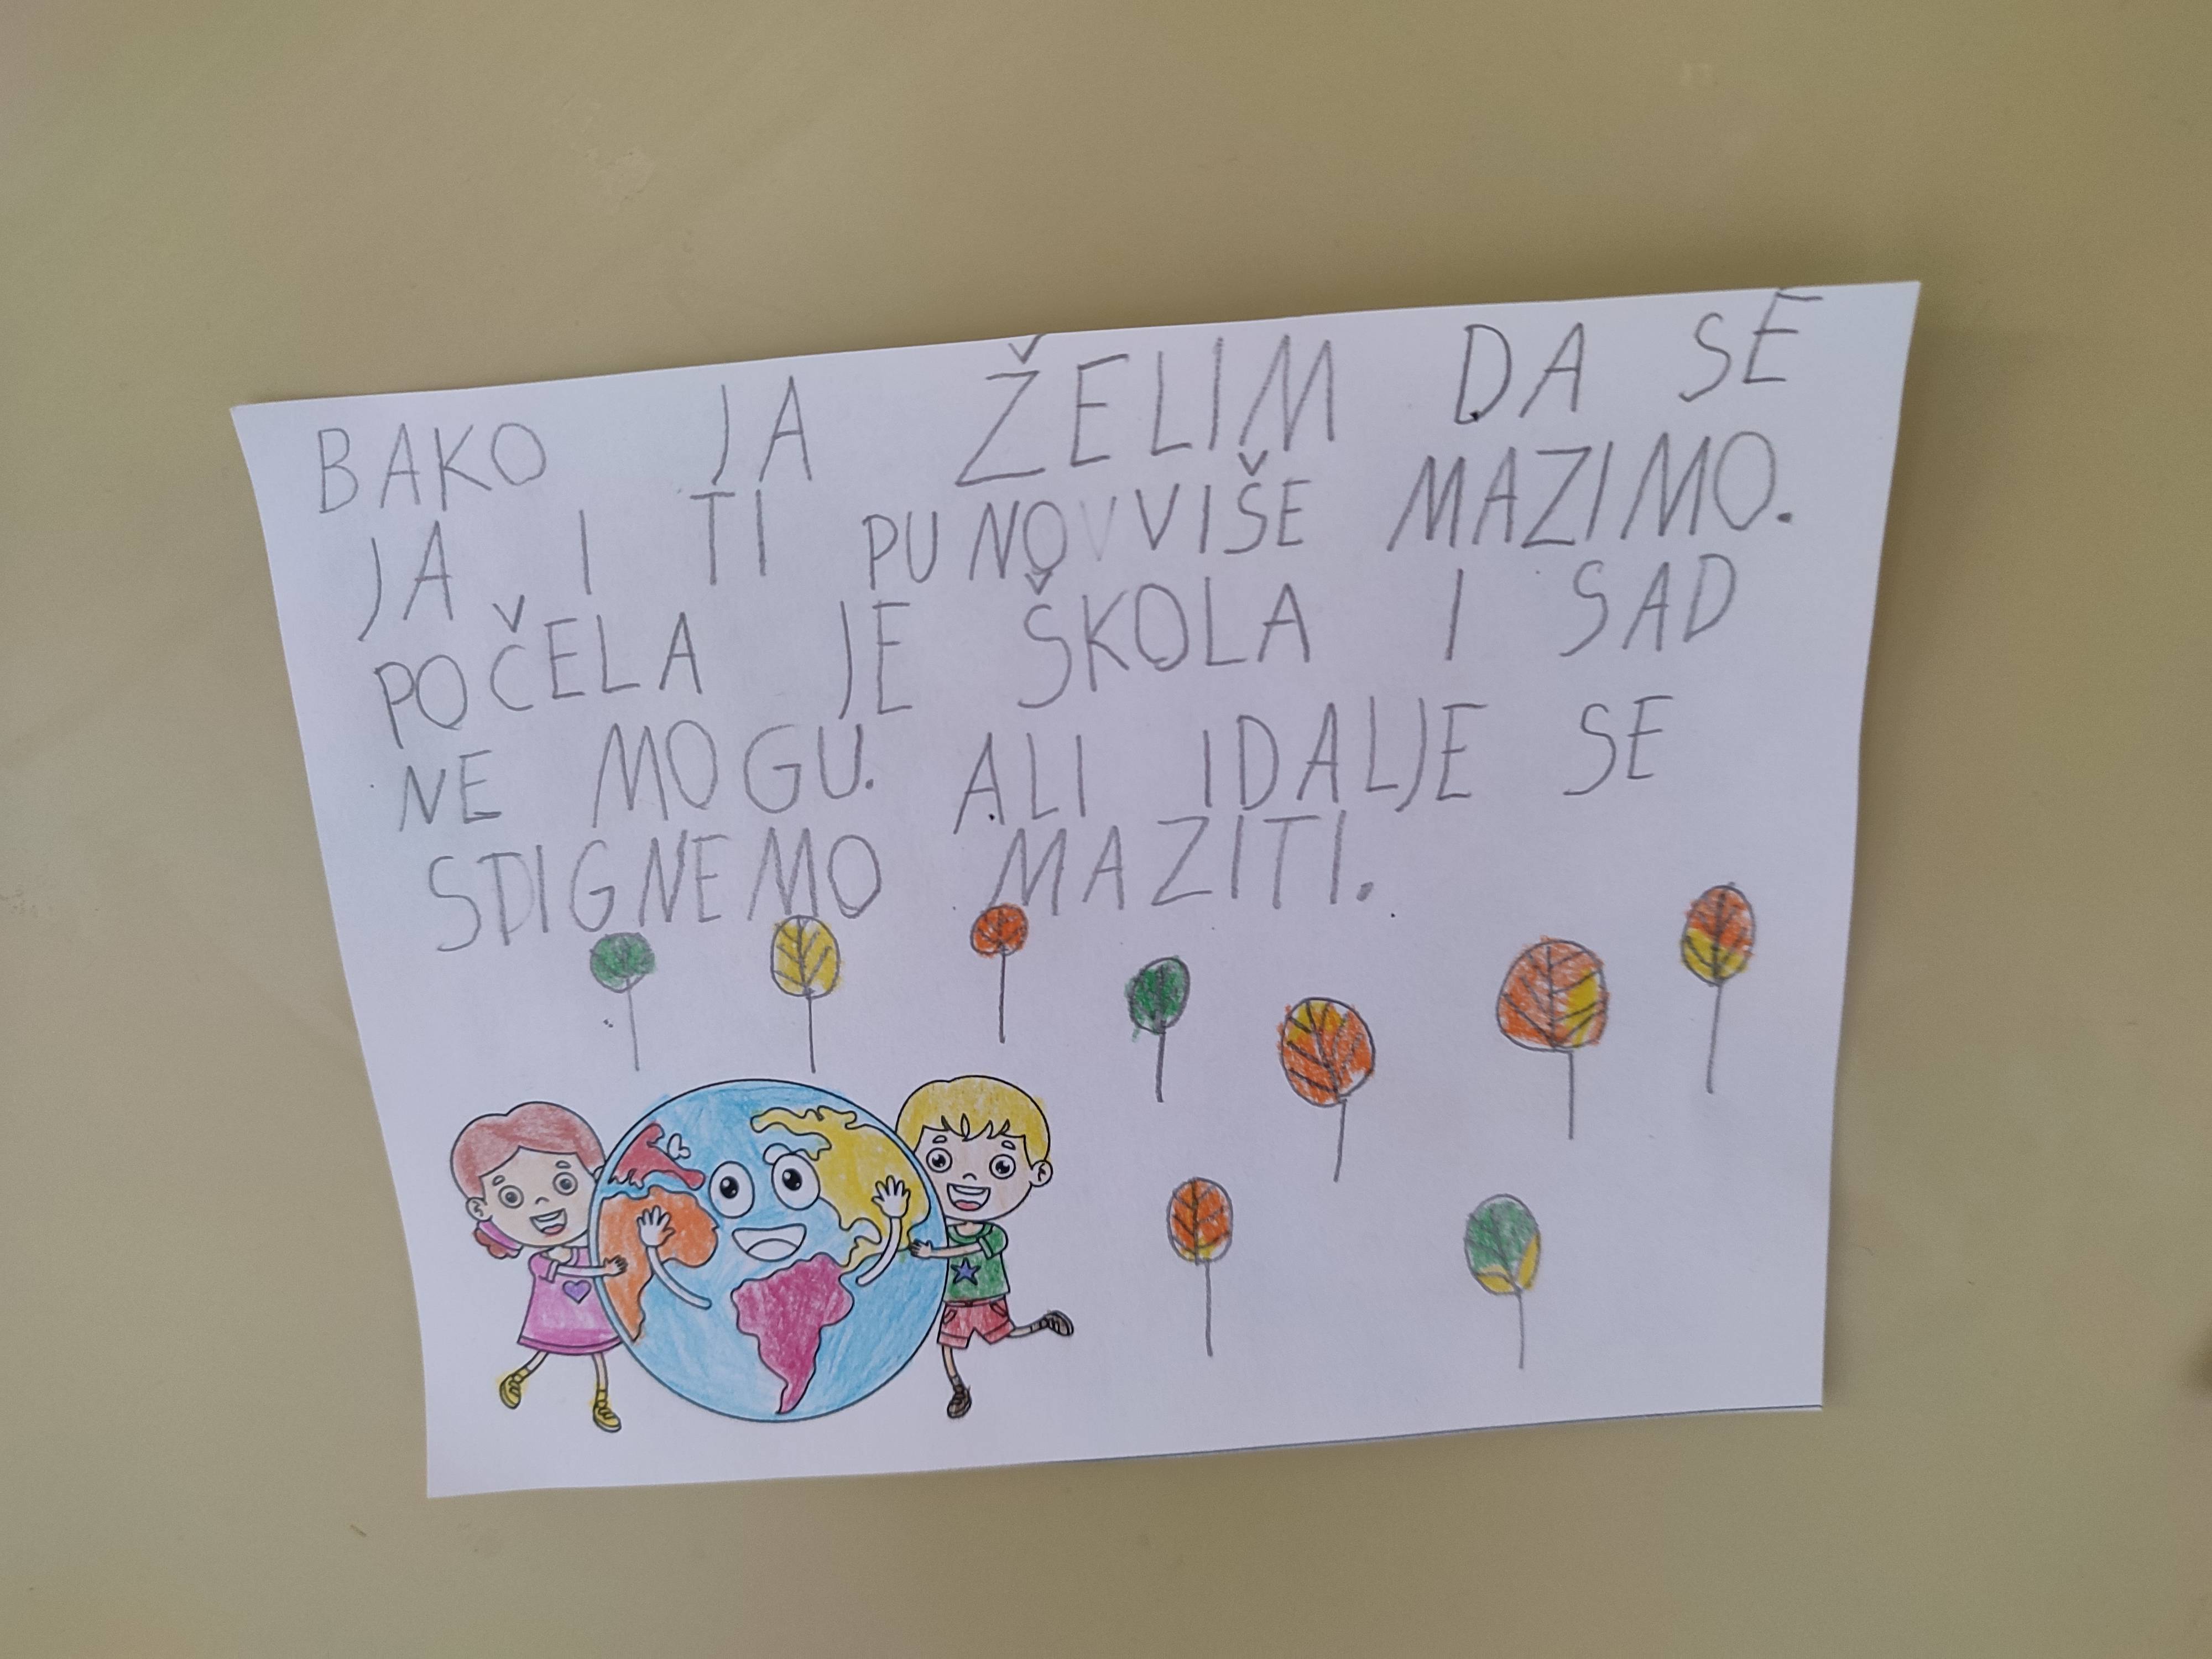 BAKO JA ŽELIM DA SE
JA I TI PUNO VIŠE MAZIMO.
POČELA JE ŠKOLA I SAD
NE MOGU. ALI IDALJE SE
STIGNEMO MAZITI.